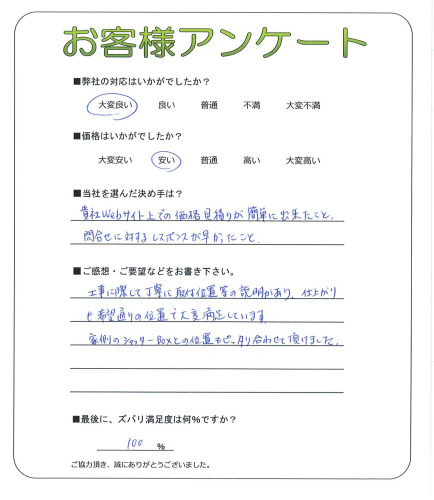 お客様アンケート
■弊社の対応はいかがでしたか?
大変良い 良い 普通 不満 大変不満
■価格はいかがでしたか?
大変安い 安い 普通 高い 大変高い
■当社を選んだ決め手は?
貴社Webサイト上での価格見積りが簡単に出来たこと、
問合せに対するレスポンスが早かったこと、
■ご感想・ご要望などをお書き下さい。
工事に際して丁寧に取付位置等の説明があり、仕上がり
も希望通りの位置で大変満足しています
のシャッターBoxとの位置もピッタリ合わせて頂けました。
■最後に、ズバリ満足度は何%ですか?
100 %
ご協力頂き、誠にありがとうございました。